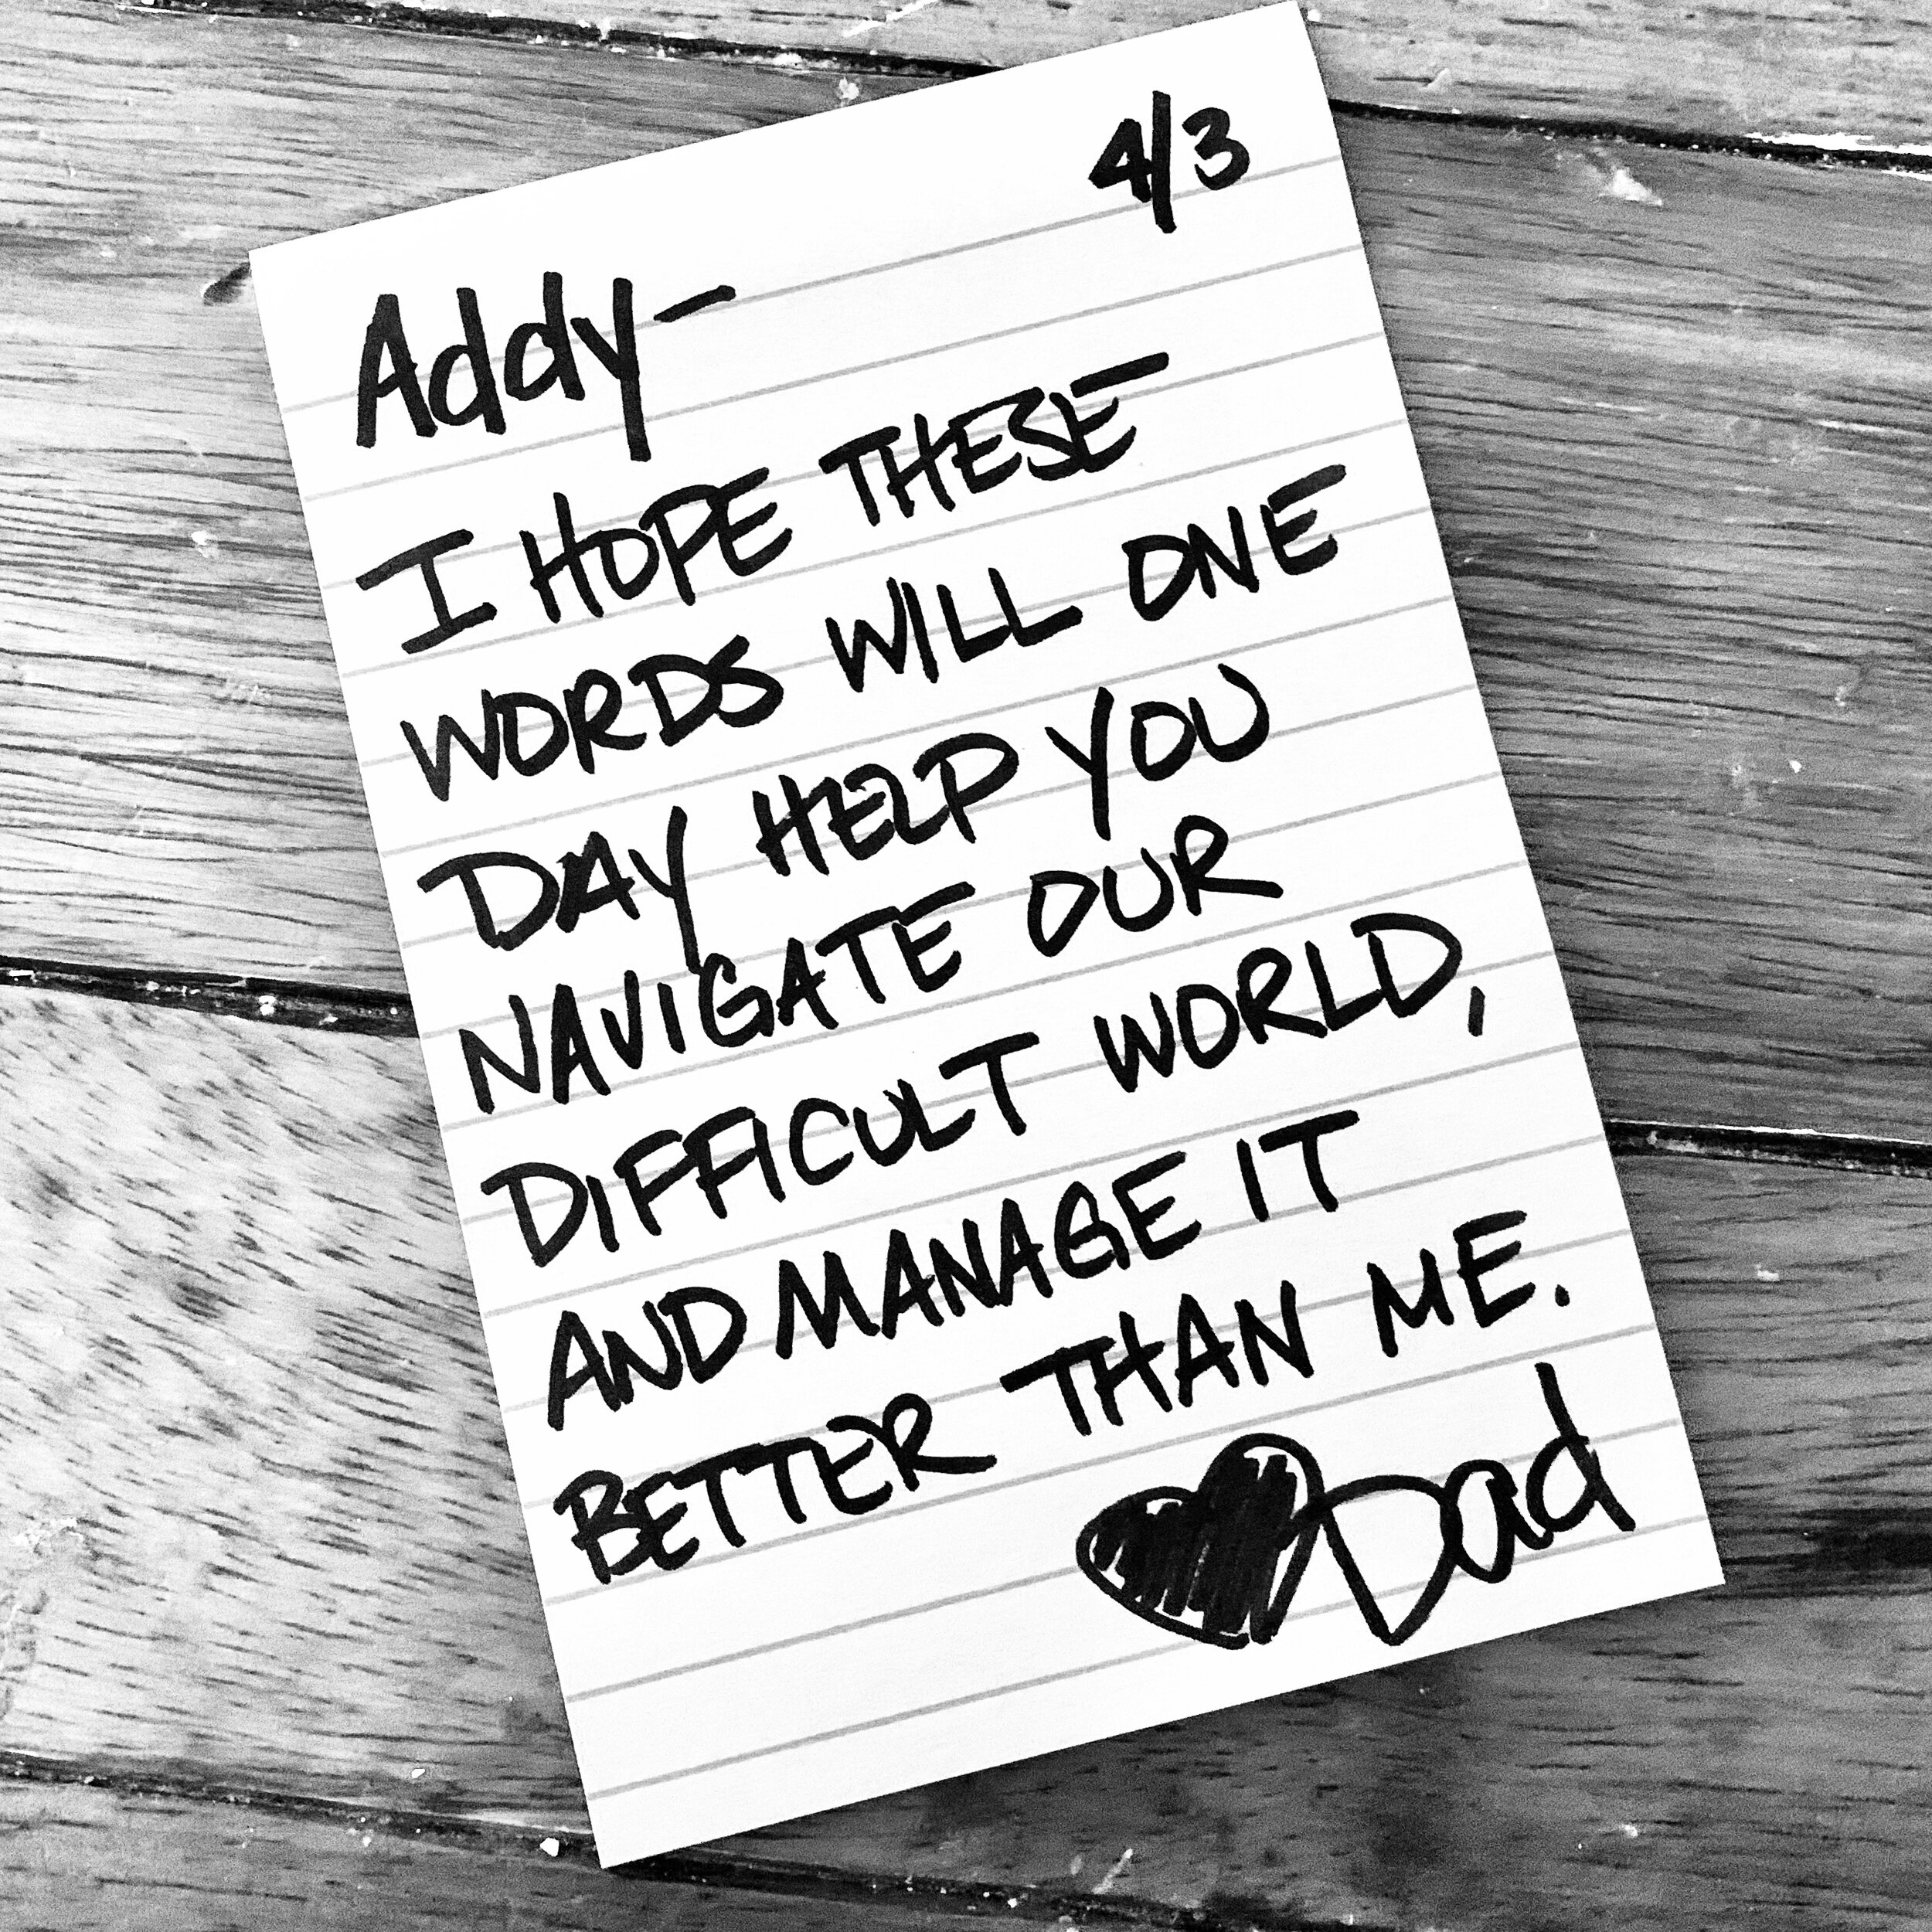 4/3
Addy-
I HOPE THESE
WORDS WILL ONE
DAY HELP YOU
NAVIGATE OUR
DIFFICULT WORLD,
AND MANAGE IT
BETTER THAN ME.
Dad